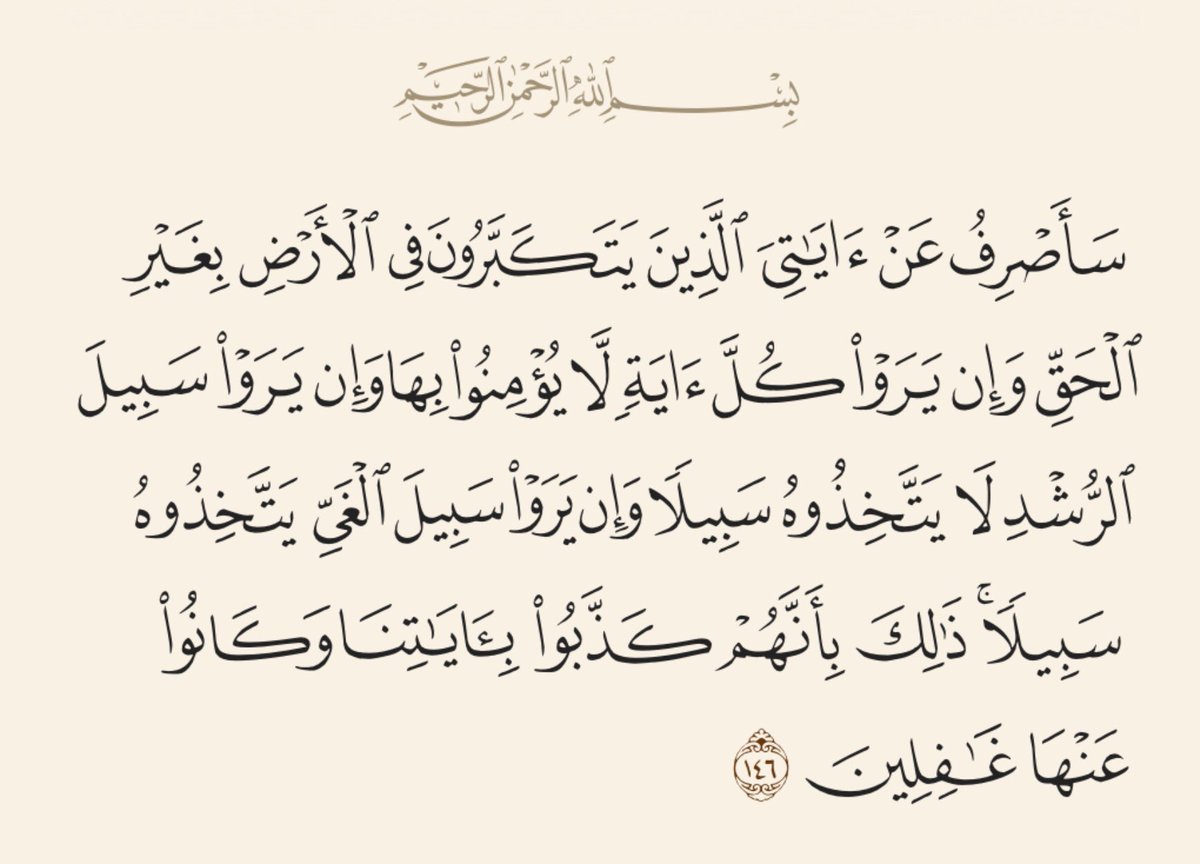 بِسْمِ ٱللَّهِ ٱلرَّحْمَٰنِ ٱلرَّحِيمِ
سَأَصْرِفُ عَنْ ءَايَٰتِىَ ٱلَّذِينَ يَتَكَبَّرُونَ فِى ٱلْأَرْضِ بِغَيْرِ
ٱلْحَقِّ وَإِن يَرَوْا۟ كُلَّ ءَايَةٍ لَّا يُؤْمِنُوا۟ بِهَا وَإِن يَرَوْا۟ سَبِيلَ
ٱلرُّشْدِ لَا يَتَّخِذُوهُ سَبِيلًا وَإِن يَرَوْا۟ سَبِيلَ ٱلْغَىِّ يَتَّخِذُوهُ
سَبِيلًا ۚ ذَٰلِكَ بِأَنَّهُمْ كَذَّبُوا۟ بِـَٔايَٰتِنَا وَكَانُوا۟
عَنْهَا غَٰفِلِينَ ١٤٦